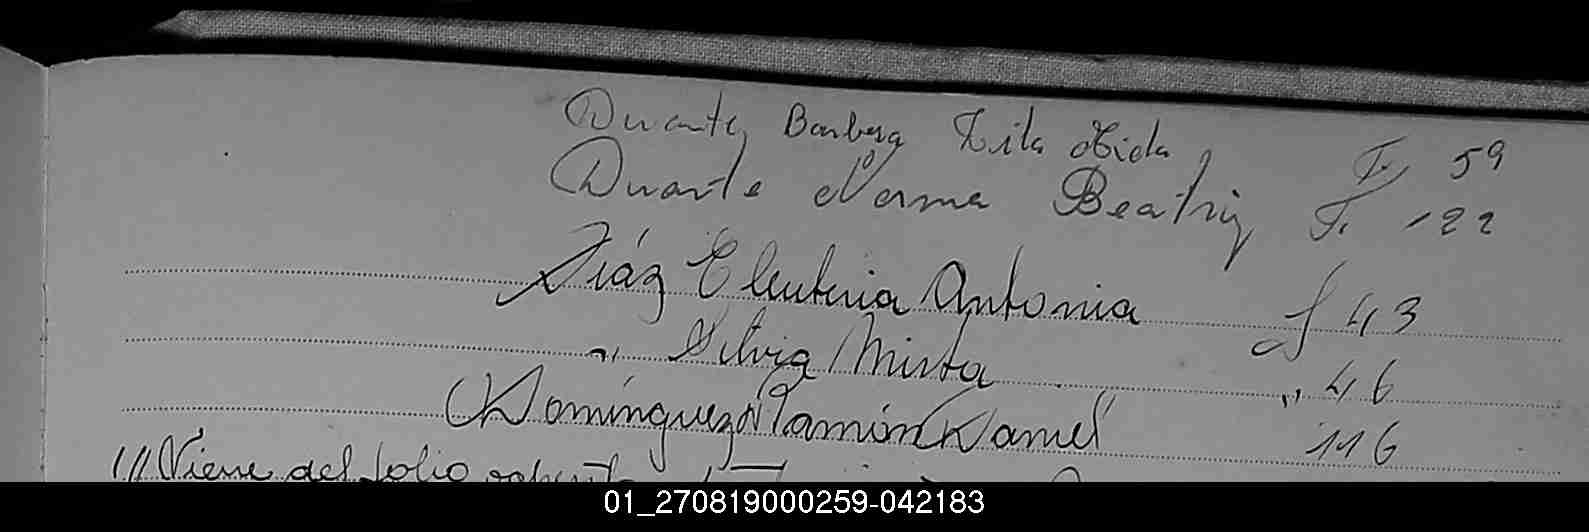 Duarte, Barbara Zila Aida F. 59
Duarte Norma Beatriz F. 122
Díaz Eleuteria Antonia f 43
" Silvia Mirta " 46
Domínguez Ramón Daniel 116
/// Viene del folio
01_270819000259-042183